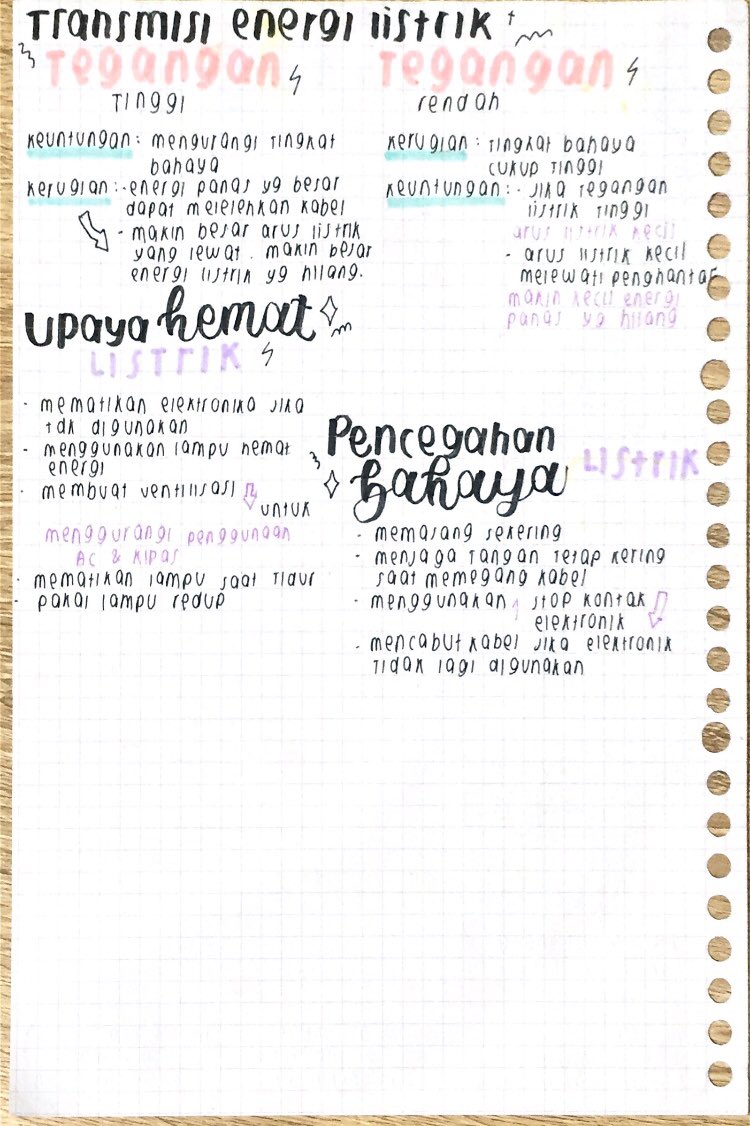 Transmisi energi listrik
Tegangan
Tinggi
keuntungan: mengurangi tingkat
bahaya
kerugian: - energi panas yg besar
dapat melelehkan kabel
- makin besar arus listrik
yang lewat. makin besar
energi listrik yg hilang.
Tegangan
rendah
kerugian: tingkat bahaya
cukup tinggi
keuntungan: - jika tegangan
listrik tinggi
arus listrik kecil
- arus listrik kecil
melewati penghantar
makin kecil energi
panas yg hilang
upaya hemat
LISTRIK
- mematikan elektronika jika
tdk digunakan
- menggunakan lampu hemat
energi
- membuat ventilisasi
untuk
menggurangi penggunaan
AC & kipas
- mematikan lampu saat tidur
- pakai lampu redup
Pencegahan
bahaya LISTRIK
- memasang sekering
- menjaga tangan tetap kering
saat memegang kabel
- menggunakan stop kontak
elektronik
- mencabut kabel jika elektronik
tidak lagi digunakan